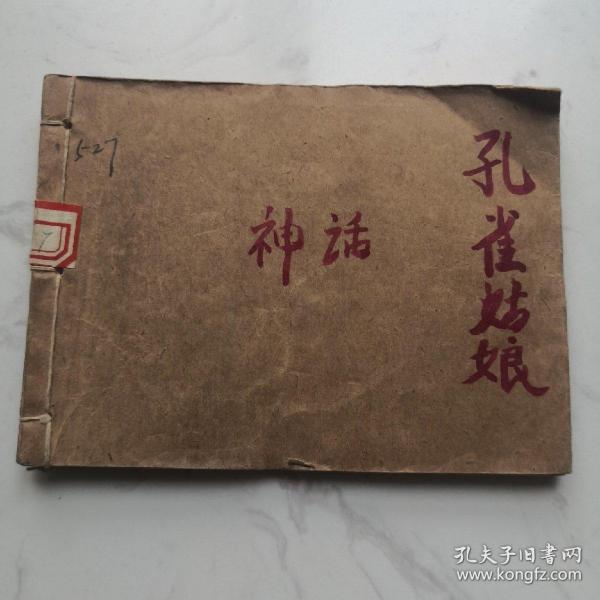 527
7
神话
孔雀姑娘
孔夫子旧书网
www.kongfz.com